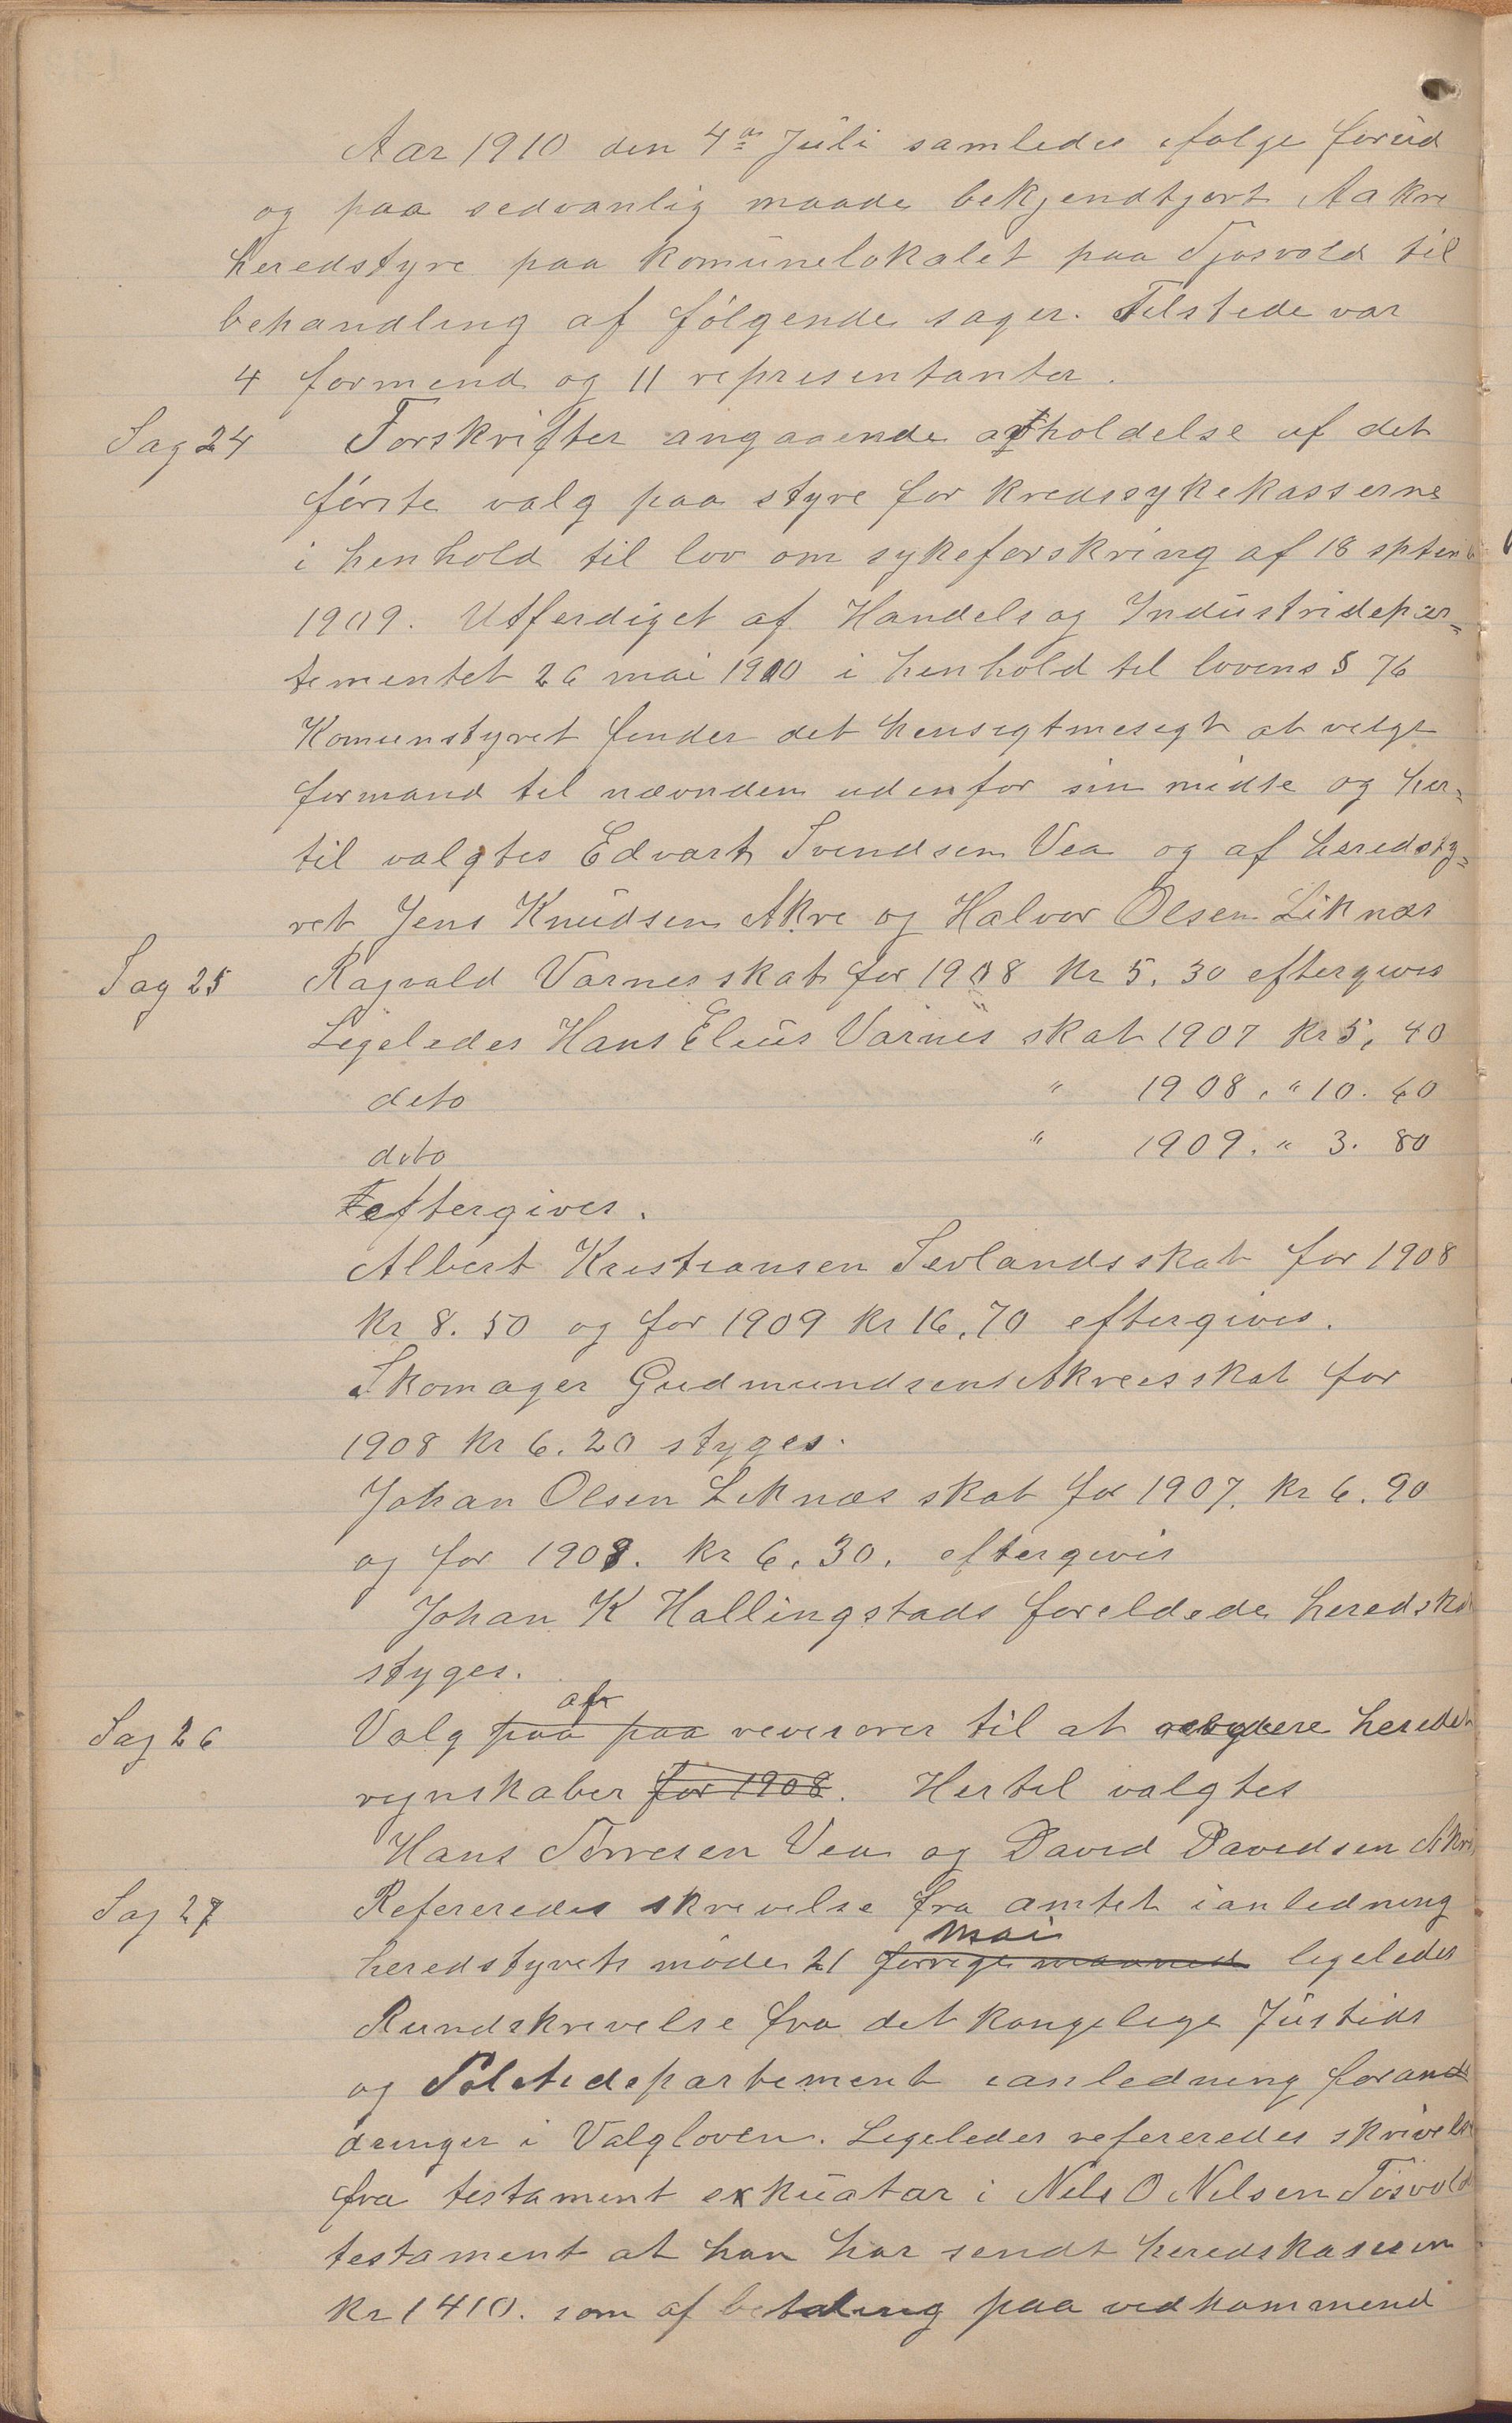 Aar 1910 den 4de Juli samledes ifølge forud
og paa sedvanlig maade bekjendtgjort Aakre
heredstyre paa komunelokalet paa Tjøsvold til
behandling af følgende sager. Tilstede var
4 formend og 11 representanter.
Sag 24 Forskrifter angaaende afholdelse af det
første valg paa styre for kredssykekasserne
i henhold til lov om sykeforskring af 18 sptemb
1909. Utferdiget af Handels og Industridepar=
tementet 26 mai 1910 i henhold til lovens § 76
Komunstyret finder det hensigtmesigt at velge
formand til nævnden udenfor sin midte og her=
til valgtes Edvart Svendsen Vea og af heredsty=
ret Jens Knudsen Akre og Halvor Olsen Liknæs
Sag 25 Ragvald Varnes skat for 1908 kr 5.30 eftergives
Ligeledes Hans Elius Varnes skat 1907 kr 5,40
deto " 1908. " 10.60
deto " 1909. " 3.80
eftergives.
Albert Kristiansen Sevlands skat for 1908
kr 8.50 og for 1909 kr 16,70 eftergives.
Skomager Gudmundsens Akres skat for
1908 kr 6.20 styges.
Johan Olsen Liknæs skat for 1907. kr 6.90
og for 1908. kr 6.30. eftergives
Johan K Hallingstads foreldede heredska
styges.
Sag 26 Valg paa paa af revisorer til at hereds
regnskaber for 1908. Hertil valgtes
Hans Torresen Vea og David Davidsen Akre
Sag 27 Refereredes skrivelse fra amtet ianledning
heredstyrets møde 21 forrige maaned mai ligeledes
Rundskrivelse fra det kongelige Justids
og Politidepartement ianledning forand
dringer i Valgloven. Ligeledes refereredes skrivelse
fra testament exkuatar i Nils O Nilsen Tøsvold
testament at han har sendt heredskassen
kr 1410. som af betaling paa vedkommend